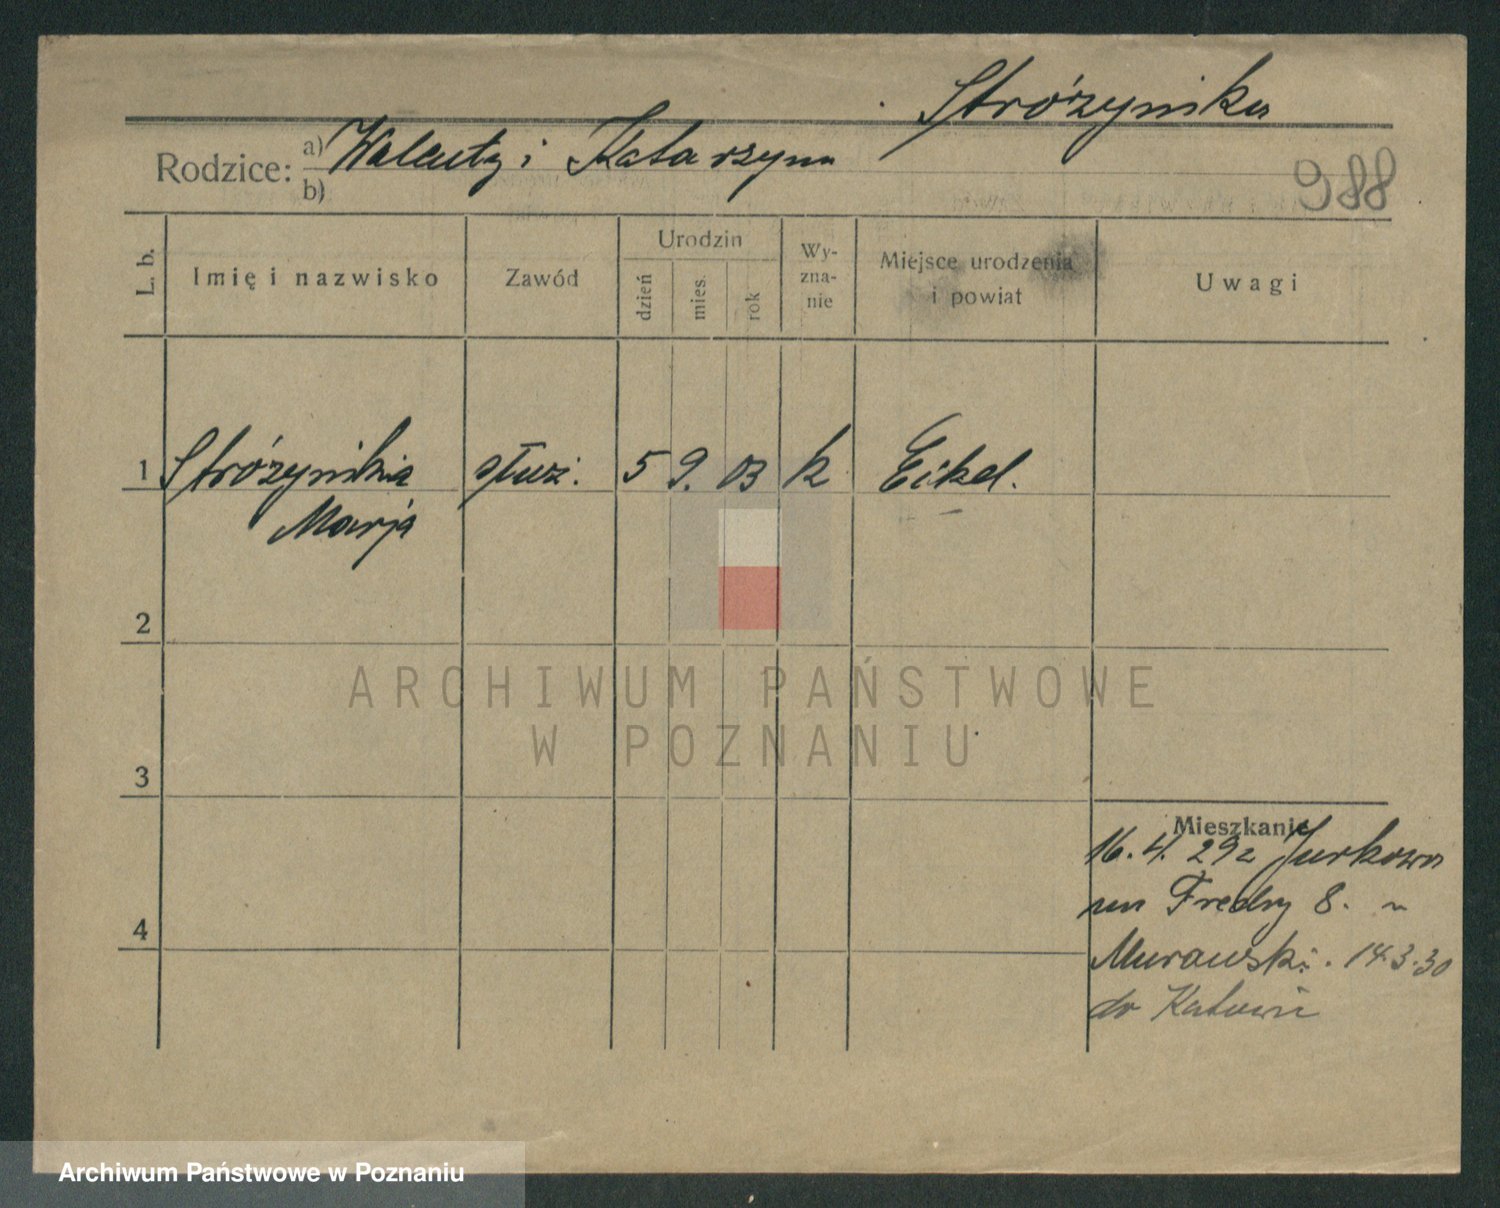 Stróżynika
Rodzice: a) Walenty i Katarzyna
b)
988
L. b.
Imię i nazwisko
Zawód
Urodzin
dzień
mies.
rok
Wy-
zna-
nie
Miejsce urodzenia
i powiat
Uwagi
1 Stróżynikia służ. 5 9. 03 k Eikel.
Marja
2
3
4
ARCHIWUM PAŃSTWOWE
W POZNANIU
Mieszkanie
16. 4. 29 z Jurkowa
na Fredry 8. u
Murawski. 14.3.30
do Katowic
Archiwum Państwowe w Poznaniu